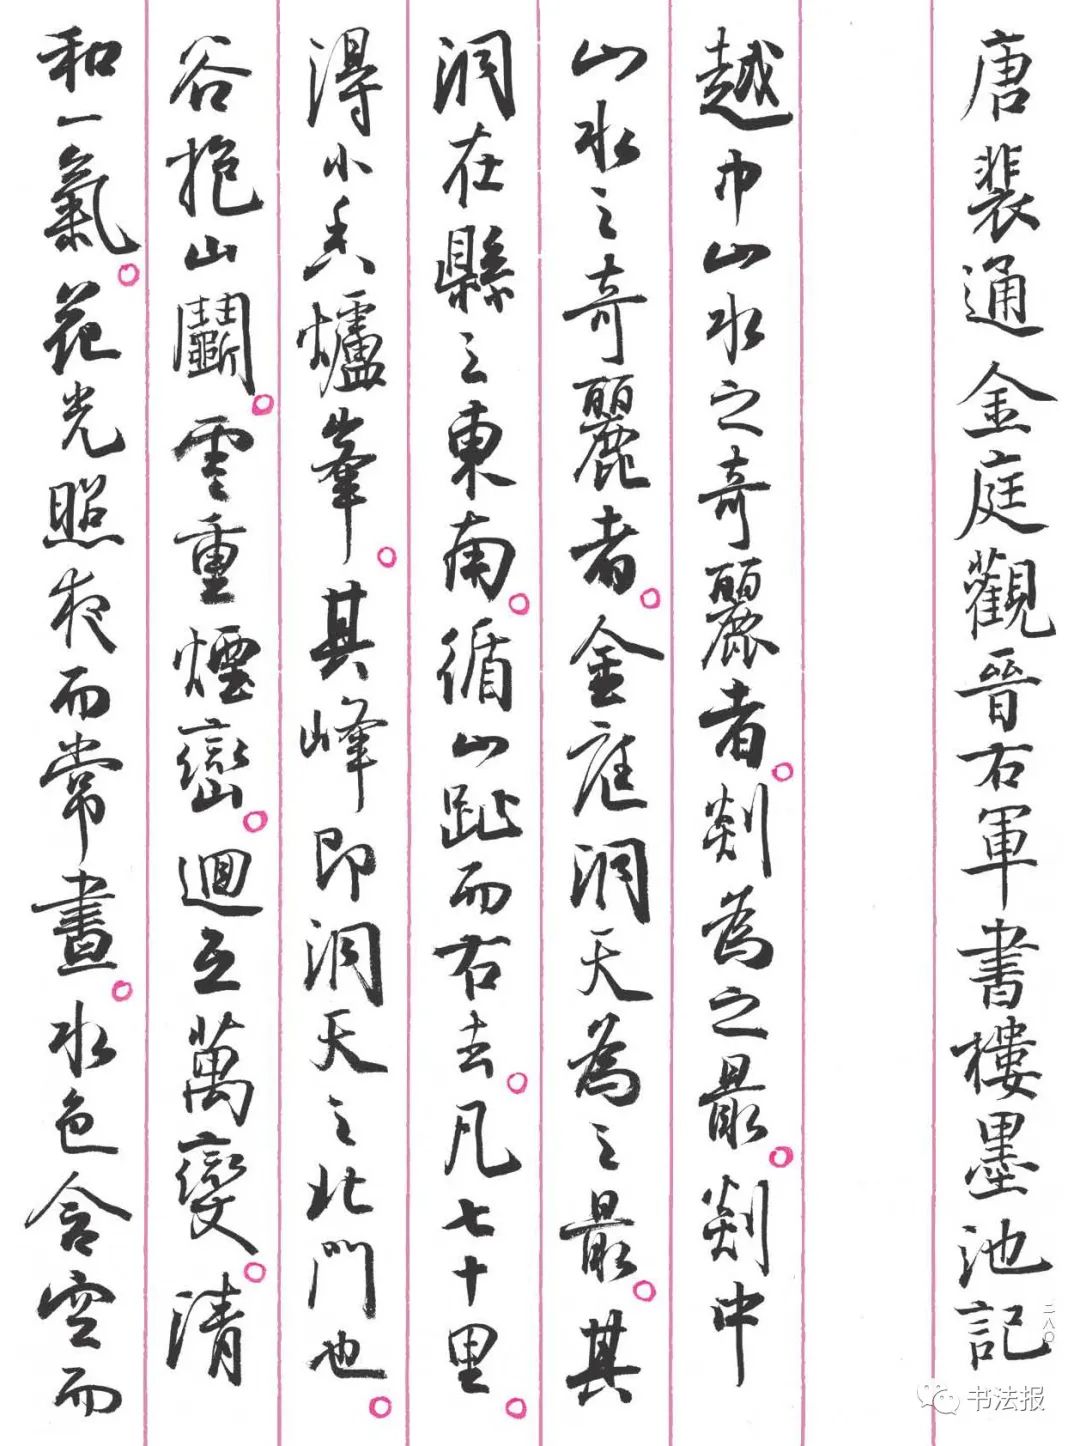 唐裴通金庭觀晉右軍書樓墨池記
二八〇
越中山水之奇麗者。剡為之最。剡中
山水之奇麗者。金庭洞天為之最。其
洞在縣之東南。循山趾而右去。凡七十里。
得小香爐峯。其峰即洞天之北門也。
谷抱山鬭。雲重煙巒。迴互萬變。清
和一氣。花光照夜而常晝。水色含空而
书法报